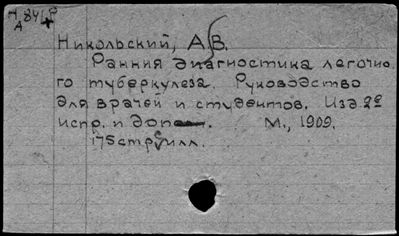 Никольский, А.В.
Ранняя диагностика легочно
го туберкулеза. Руководство
для врачей и студентов. Изд. 2е
испр. и доп. М., 1909.
175 стр. с илл.